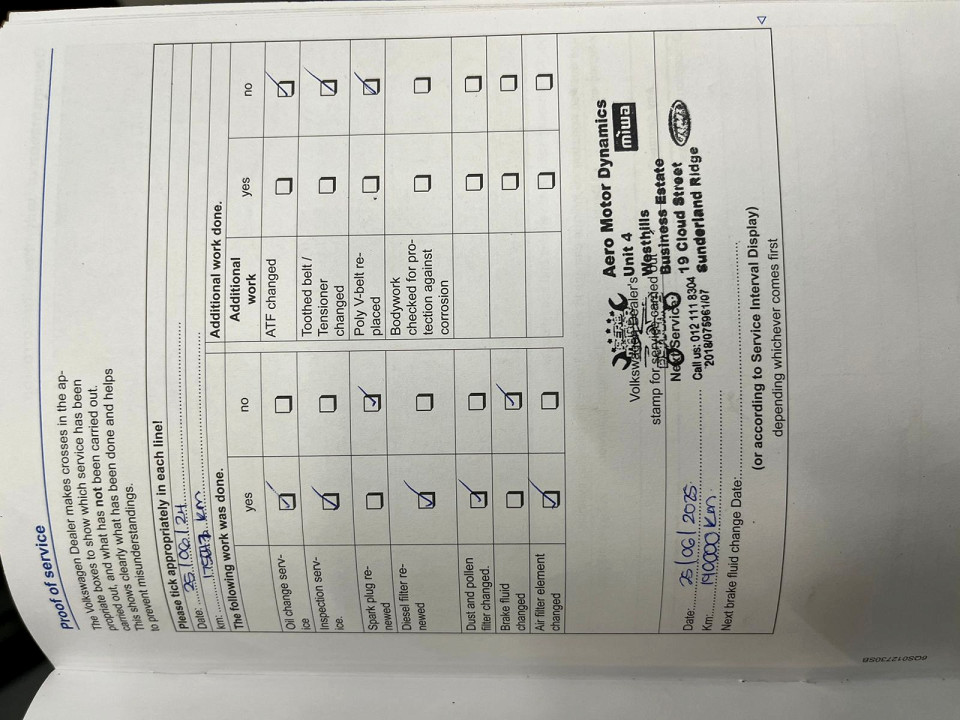 Proof of service
The Volkswagen Dealer makes crosses in the ap-
propriate boxes to show which service has been
carried out, and what has not been carried out.
This shows clearly what has been done and helps
to prevent misunderstandings.
Please tick appropriately in each line!
Date: 25/06/24
km: km
The following work was done.
yes no
Oil change serv-
ice
Inspection serv-
ice.
Spark plug re-
newed
Diesel filter re-
newed
Dust and pollen
filter changed.
Brake fluid
changed
Air filter element
changed
Additional work done.
Additional
work
yes no
ATF changed
Toothed belt /
Tensioner
changed
Poly V-belt re-
placed
Bodywork
checked for pro-
tection against
corrosion
Aero Motor Dynamics
Volkswagen Dealer's
stamp for service carried out
Unit 4
miwa
Westhills
Business Estate
19 Cloud Street
Sunderland Ridge
Call us: 012 111 8304
2018/075961/07
Next Service
Date: 25/06/2025
Km: 190000 km
Next brake fluid change Date:
(or according to Service Interval Display)
depending whichever comes first
6QS012730SB